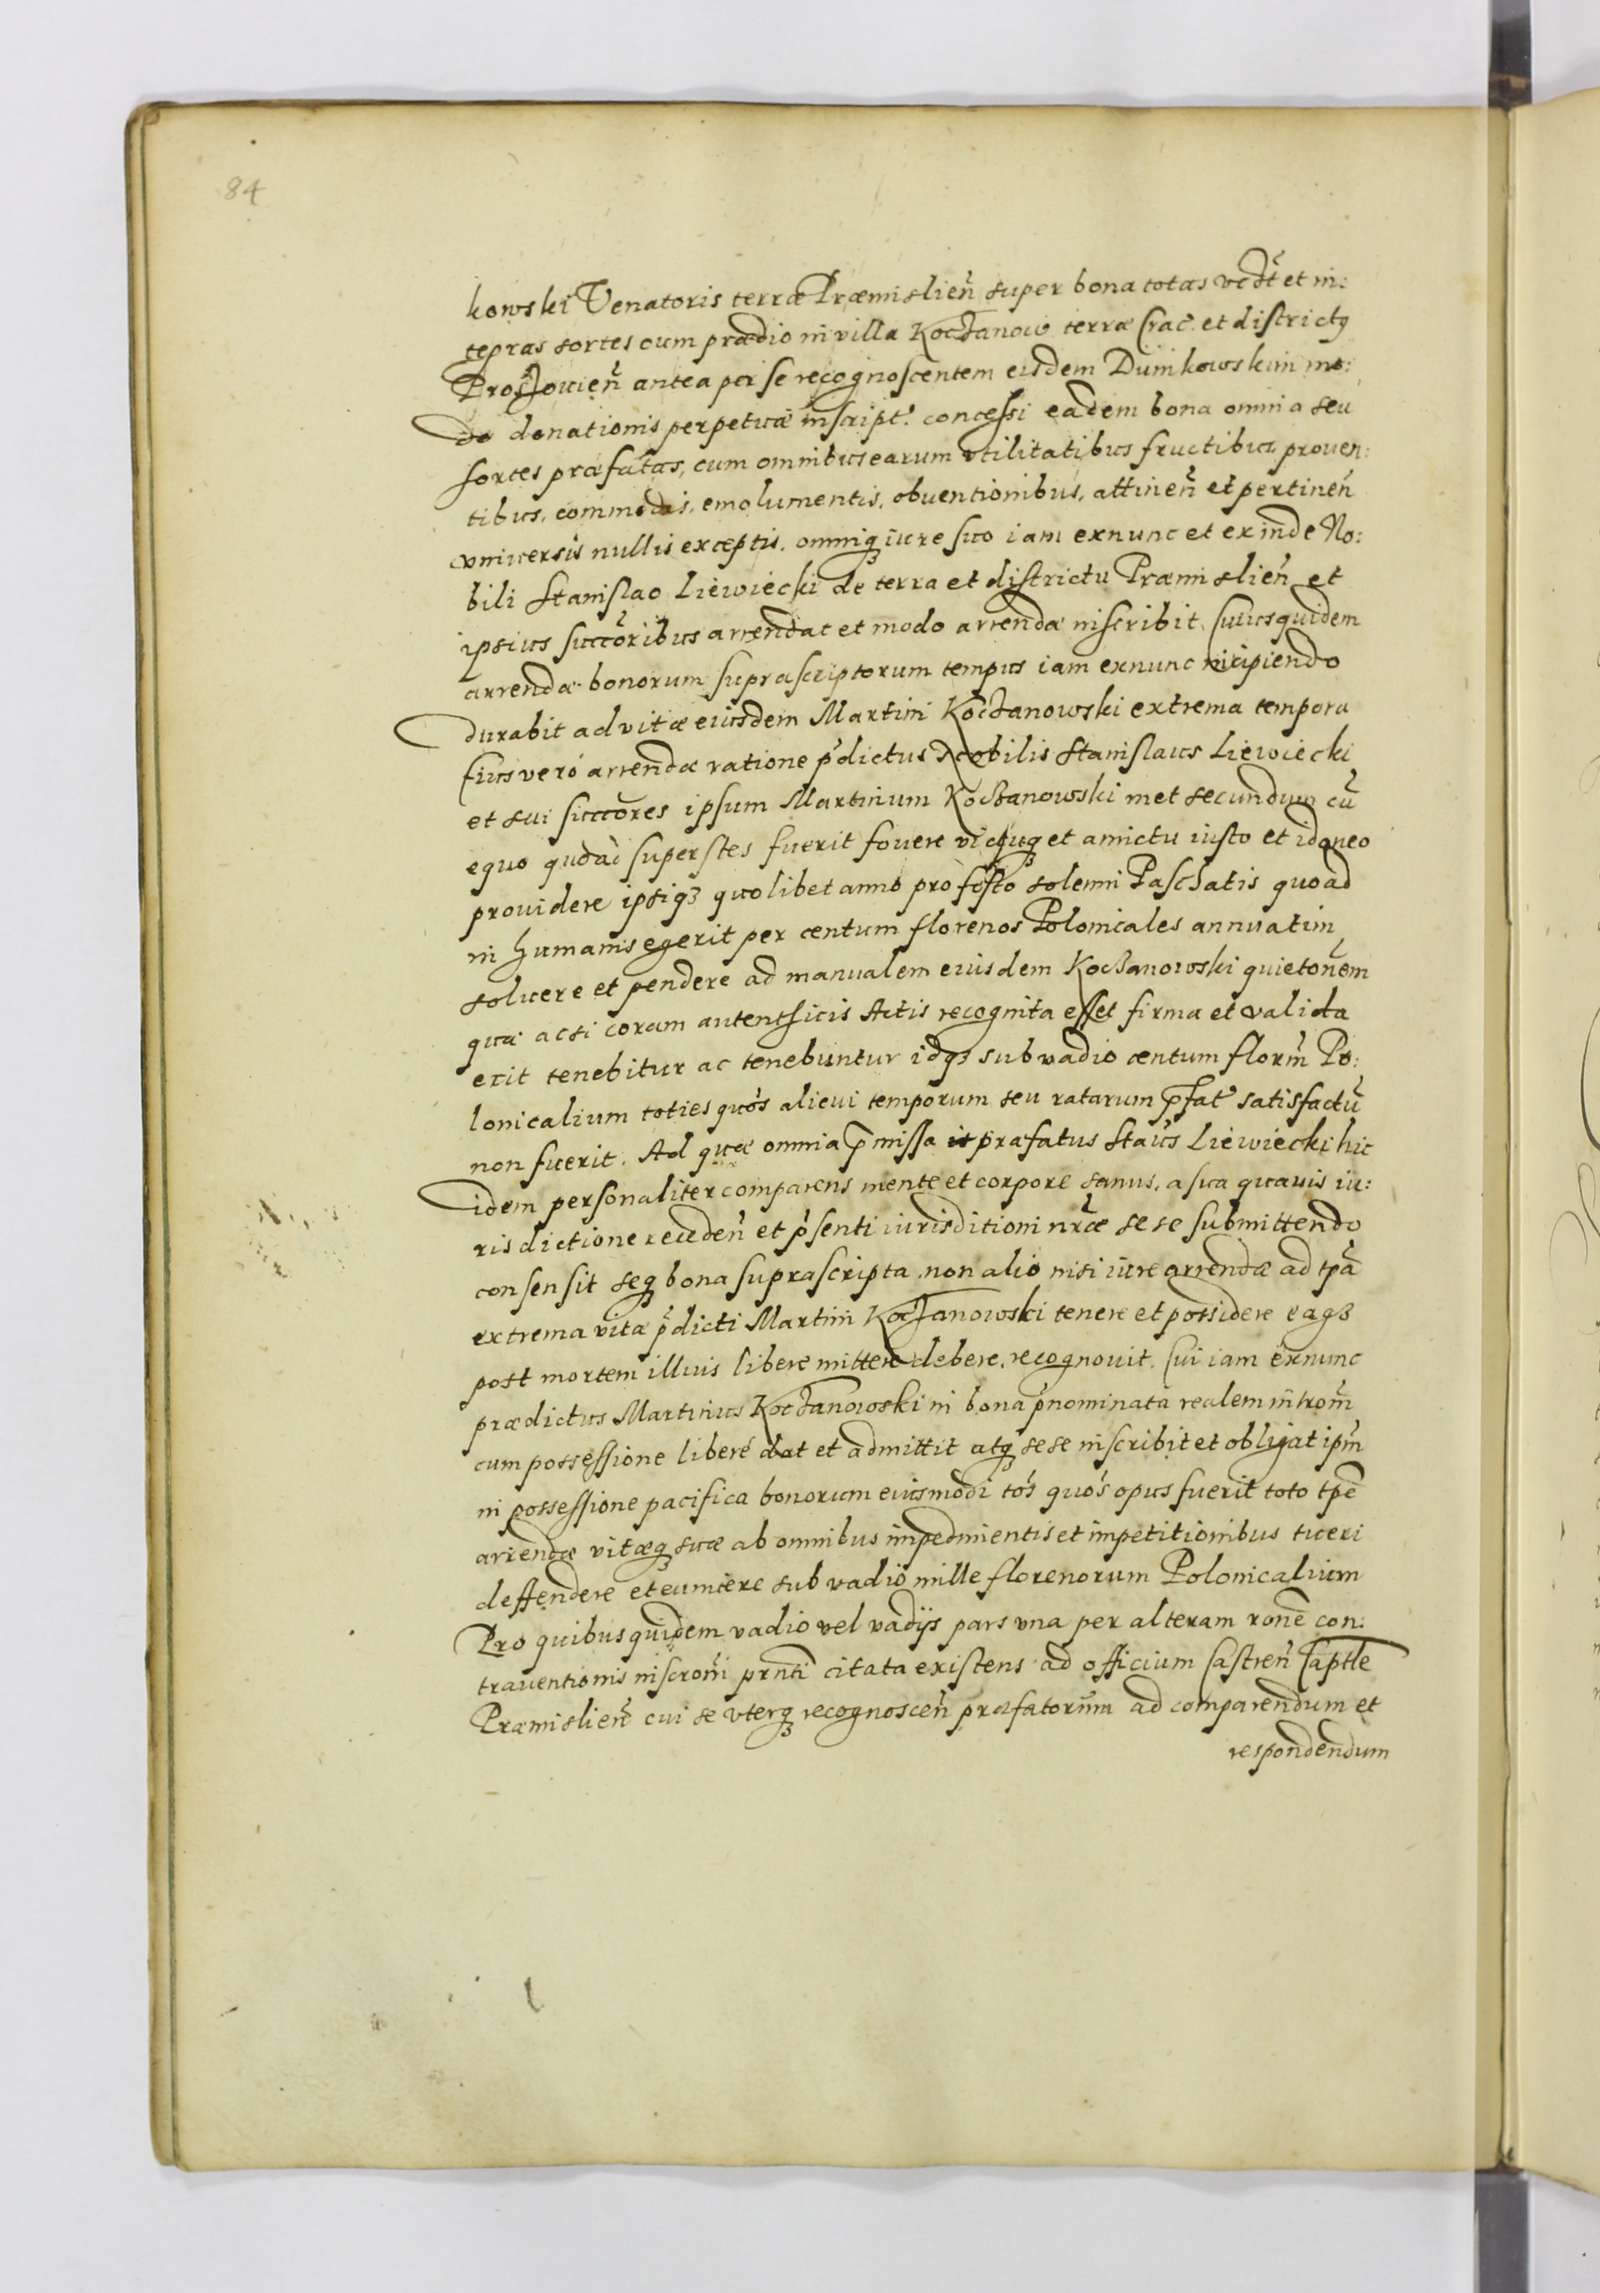 84
kowski Venatoris terræ Præmislien̄ super bona totas vedt̄ et in:
tegras sortes cum prædio in villa Kochanow terræ Crac̄. et districtꝰ
Proszowien̄ antea per se recognoscentem eidem Dunikowskim mo:
do donationis perpetuæ inscript. concessi eadem bona omnia seu
sortes præfatas, cum omnibus earum vtilitatibus fructibus proven:
tibus, commodis, emolumentis, obuentionibus, attinen̄ et pertinen̄
vniuersis nullis exceptis, omniqꝫ iure suo iam exnunc et exinde No:
bili Stanislao Liewiecki de terra et districtu Præmislien̄ et
ipsius succōribus arrendat et modo arrendæ inscribit. Cuiusquidem
arrendæ bonorum suprascriptorum tempus iam exnunc incipiendo
durabit ad vitæ eiusdem Martini Kochanowski extrema tempora
Cuius veró arrendæ ratione p̄dictus Nobilis Stanislaus Liewiecki
et sui succōres ipsum Martinum Kochanowski met secundum cū
equo quoad superstes fuerit fouere victuqꝫ et amictu iusto et idoneo
prouidere ipsiqꝫ quolibet anno pro festo solenni Paschatis quoad
in humanis egerit per centum florenos Polonicales annuatim
soluere et pendere ad manualem eiusdem Kochanowski quietōnem
quæ acsi coram autenthicis Actis recognita esset firma et valida
erit tenebitur ac tenebuntur idqꝫ sub vadio centum florm̄ Po:
lonicalium toties quós alicui temporum seu ratarum p̄fat satisfactū
non fuerit. Ad quæ omnia p̄missa præfatus Staūs Liewiecki hic
idem personaliter comparens mente et corpore sanus, a sua quauis iu:
risdictione receden̄ et p̄senti iurisditioni nr̄æ se se submittendo
consensit seqꝫ bona suprascripta non alio nisi iure arrendæ ad tp̄a
extrema vitæ p̄dicti Martini Kochanowski tenere et possidere eaqꝫ
post mortem illius libere mittere debere, recognouit. Cui iam exnunc
prædictus Martinus Kochanowski in bona p̄nominata realem intrōm̄
cum possessione liberé dat et admittit atqꝫ sese inscribit et obligat ipm̄
in possessione pacifica bonorum eiusmodi tós quós opus fuerit toto tp̄e
arrendæ vitæqꝫ suæ ab omnibus impedimentis et impetitionibus tueri
deffendere et euincere sub vadio mille florenorum Polonicalium
Pro quibus quidem vadio vel vadijs pars vna per alteram rōne con:
trauentionis inscrōni prn̄ti citata existens ad officium Castren̄ Capitle
Præmislien̄ cui se vterqꝫ recognoscen̄ præfatorum ad comparendum et
respondendum